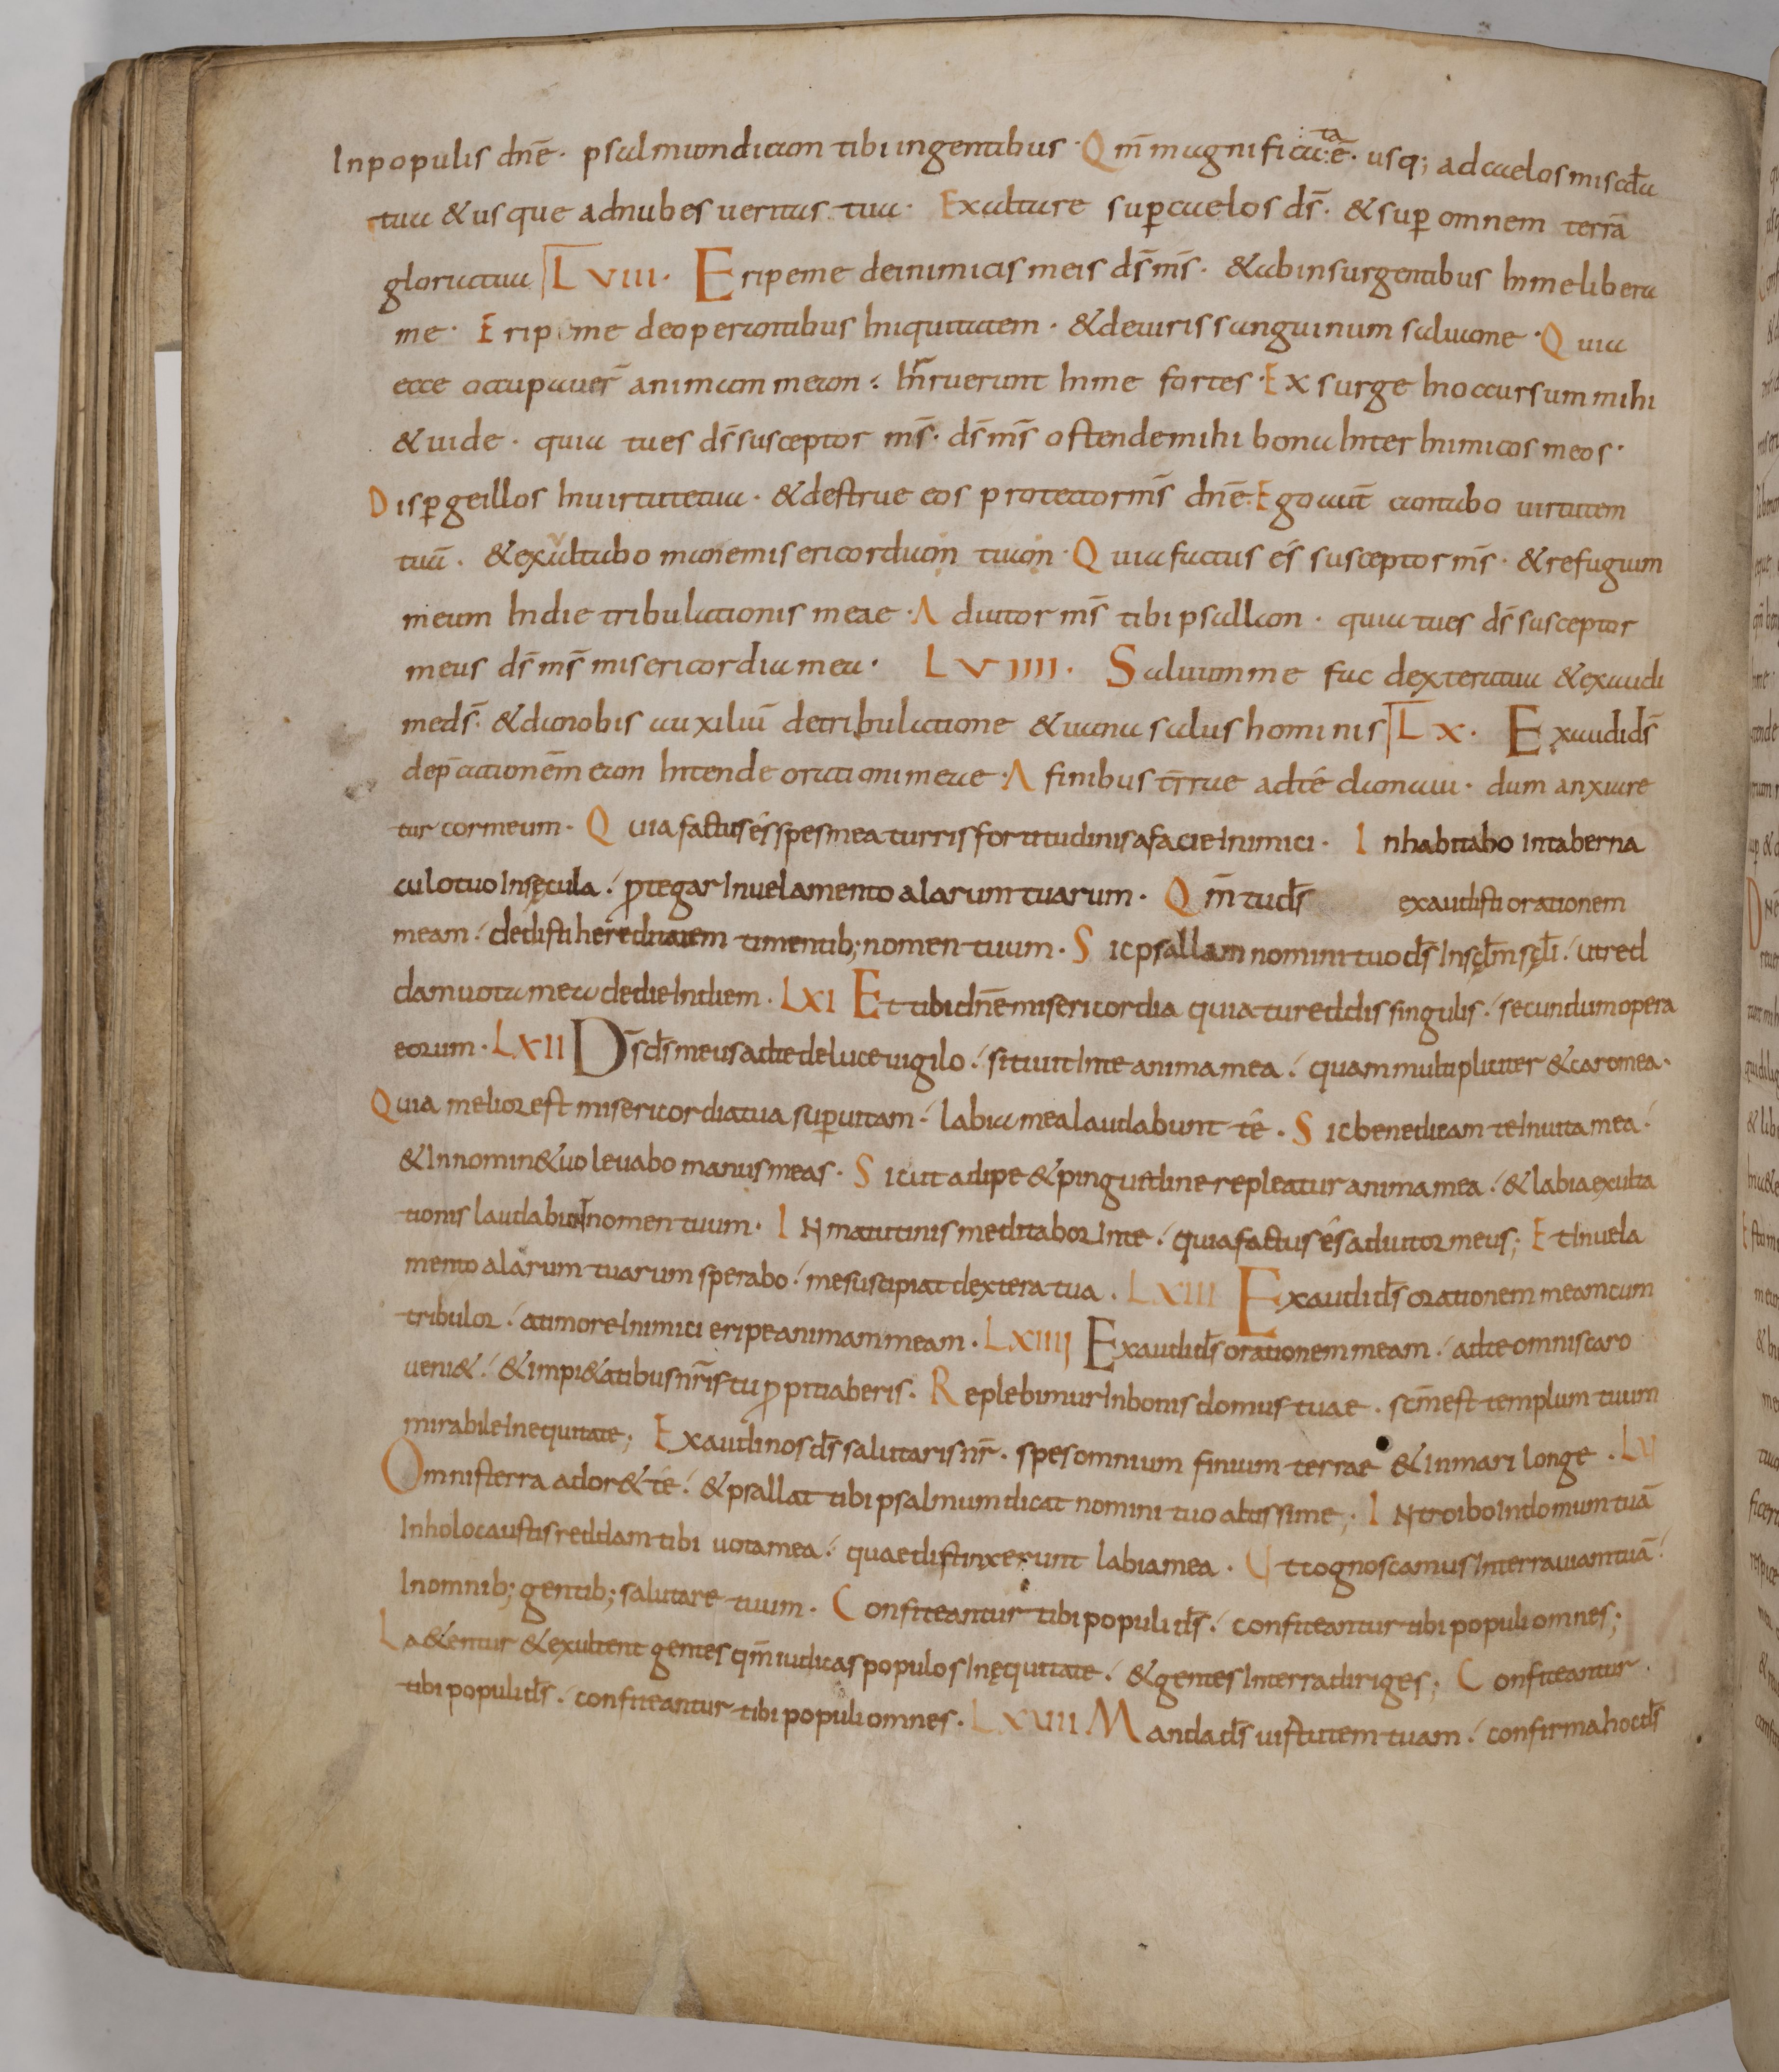 Inpopulis dnē· psalmumdicam tibi ingentibus· Qm̄ magnificata ē· usq; ad caelos misc̄dia
tua & usque adnubes ueritas tua· Exaltare sup̄ caelos ds̄· & sup̄ omnem terrā
gloria tua LVIII· Eripeme deinimicis meis ds̄ ms̄· & abinsurgentibus Inme libera
me· Eripeme deoperantibus Iniquitatem· & deuiris sanguinum saluame· Quia
ecce occupauer̄ animam meam· Irruerunt Inme fortes· Exsurge Inoccursum mihi
& uide· quia tues ds̄ susceptor ms̄· ds̄ ms̄ ostendemihi bona Inter Inimicos meos·
Disp̄geillos Inuirtutetua· & destrue eos protector ms̄ dnē· Egoaut̄ cantabo uirtutem
tuā· & exultabo manemisericordiam tuam· Quia factus és susceptor ms̄· & refugium
meum Indie tribulationis meae· Adiutor ms̄ tibi psallam· quia tues ds̄ susceptor
meus ds̄ ms̄ misericordia mea· LVIIII· Saluumme fac dextera tua & exaudi
me ds̄· & danobis auxiliū detribulatione & uana salus hominis LX· Exaudi ds̄
dep̄cationēmeam Intende orationi meae· A finibus tr̄rae adté clamaui· dum anxiare
tur cormeum· Quia factus és spes mea turris fortitudinis afacie Inimici· Inhabitabo Intaberna
culotuo Insęcula· p̄tegar Inuelamento alarum tuarum· Qm̄ tu ds̄ exaudisti orationem
meam· dedisti hereditatem timentib; nomen tuum· Sic psallam nomini tuo ds̄ Insęclm̄ sęcli· utred
dam uota mea dedieIndiem· LXI Et tibi dnē misericordia quia tu reddis singulis· secundum opera
eorum· LXII Ds̄ ds̄ meus adte deluce uigilo· sitiuit Inte anima mea· quam multipliciter & caro mea·
Quia melior est misericordia tua sup̄ uitam· labia mea laudabunt té· Sic benedicam te Inuita mea·
& Innomin& uo leuabo manus meas· Sicut adipe & pinguidine repleatur anima mea· & labia exulta
tionis laudabunt nomen tuum· IN matutinis meditabor Inte· quia factus és adiutor meus; Et Inuela
mento alarum tuarum sperabo· me suscipiat dextera tua· LXIII Exaudi ds̄ orationem meam cum
tribulor· atimore Inimici eripe animam meam· LXIIII Exaudi ds̄ orationem meam· adte omnis caro
ueni&· & impi&atibus nr̄is tu p̄pitiaberis· Replebimur Inbonis domus tuae· scm̄ est templum tuum
mirabile Inequitate; Exaudi nos ds̄ salutaris nr̄· spes omnium finium terrae & Inmari longe· LV
Omnis terra ador& té· & psallat tibi psalmum dicat nomini tuo altissime; INtroibo Indomum tuā
Inholocaustis reddam tibi uota mea· quae distinxerunt labia mea· Ut cognoscamus Interra uiam tuā·
Inomnib; gentib; salutare tuum· Confiteantur tibi populi ds̄· confiteantur tibi populi omnes;
La&entur & exultent gentes qm̄ iudicas populos Inęquitate· & gentes Interra diriges; Confiteantur
tibi populi ds̄· confiteantur tibi populi omnes· LXVII Manda ds̄ uirtutem tuam· confirma hoc ds̄